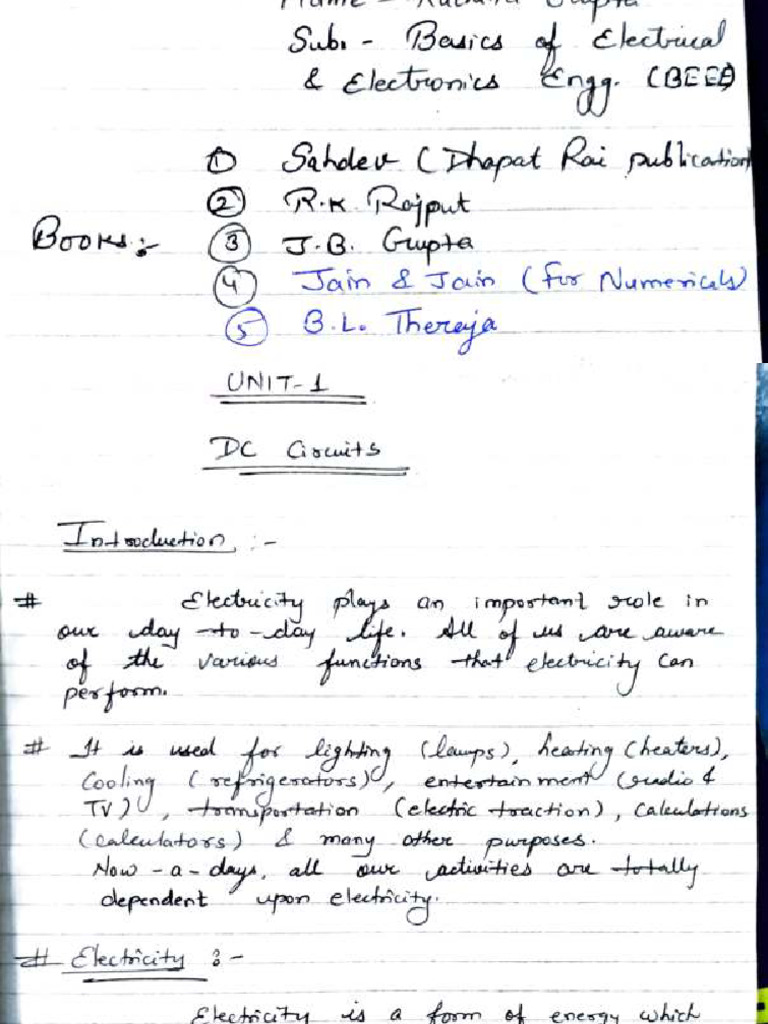 Name - Gupta
Sub. - Basics of Electrical
& Electronics Engg. (BEEE)
① Sahdev (Dhapat Rai publication)
② R.K Rajput
Books:- ③ J.B. Gupta
④ Jain & Jain (for Numericals)
⑤ B.L. Theraja
UNIT-1
DC Circuits
Introduction :-
# Electricity plays an important role in
our day-to-day life. All of us are aware
of the various functions that electricity can
perform.
# It is used for lighting (lamps), heating (heaters),
Cooling (refrigerators), entertainment (radio &
TV), transportation (electric traction), calculations
(calculators) & many other purposes.
Now-a-days, all our activities are totally
dependent upon electricity.
# Electricity :-
Electricity is a form of energy which